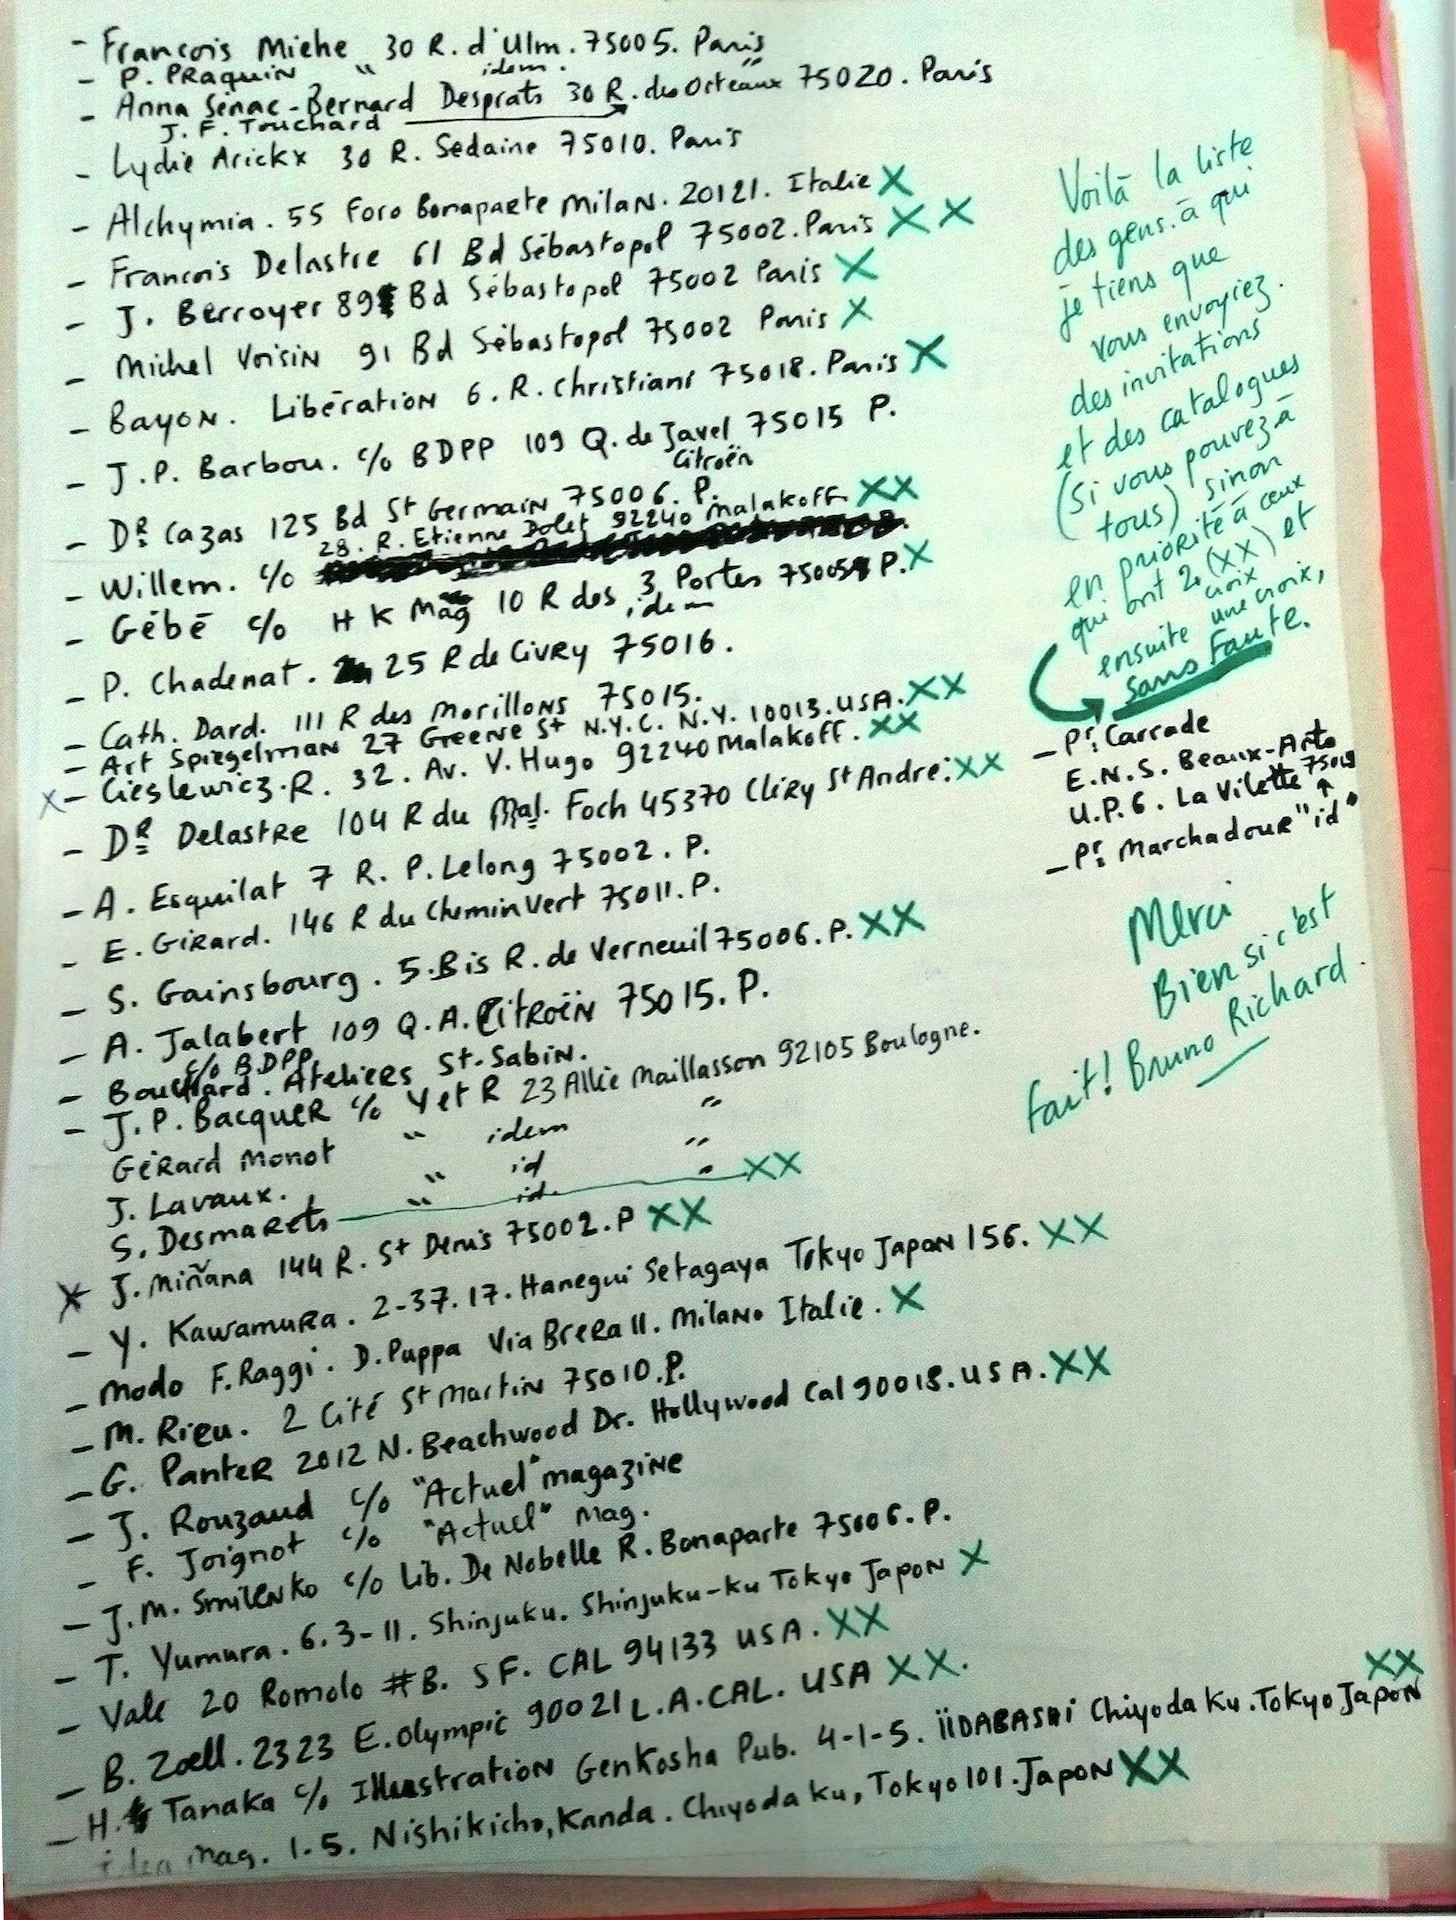 - François Miehe 30 R. d'Ulm. 75005. Paris
- P. PRaquin " idem. "
- Anna Senac-Bernard Desprats 30 R. des Orteaux 75020. Paris
J. F. Touchard
- Lydie Arickx 30 R. Sedaine 75010. Paris
- Alchymia. 55 Foro Bonaparte Milan. 20121. Italie X
- François Delastre 61 Bd Sébastopol 75002. Paris X X
- J. Berroyer 89 Bd Sébastopol 75002 Paris X
- Michel Voisin 91 Bd Sébastopol 75002 Paris X
- Bayon. Libération 6. R. Christiani 75018. Paris X
- J.P. Barbou. c/o BDPP 109 Q. de Javel 75015 P.
Citroën
- DR Cazas 125 Bd St Germain 75006. P.
28. R. Etienne Dolet 92240 Malakoff XX
- Willem. c/o
- Gébé c/o H K Mag 10 R des 3 Portes 75005 P. X
idem
- P. Chadenat. 25 R de Civry 75016.
- Cath. Dard. 111 R des Morillons 75015.
- Art Spiegelman 27 Greene St N.Y.C. N.Y. 10013. USA. XX
X- Cieslewicz. R. 32. Av. V. Hugo 92240 Malakoff. XX
- DR Delastre 104 R du Mal. Foch 45370 Cléry St André. XX
- A. Esquilat 7 R. P. Lelong 75002. P.
- E. Girard. 146 R du Chemin Vert 75011. P.
- S. Gainsbourg. 5. Bis R. de Verneuil 75006. P. XX
- A. Jalabert 109 Q. A. Citroën 75015. P.
c/o BDPP
- Bouchard. Ateliers St-Sabin.
- J.P. Bacquer c/o Y et R 23 Allée Maillasson 92105 Boulogne.
Gérard Monot " idem "
J. Lavaux. " id "
S. Desmarets " id. " XX
X J. Miñana 144 R. St Denis 75002. P XX
- Y. Kawamura. 2-37.17. Hanegui Setagaya Tokyo Japon 156. XX
- Modo F. Raggi. D. Puppa Via Brera 11. Milano Italie. X
- M. Rieu. 2 Cité St Martin 75010. P.
- G. Panter 2012 N. Beachwood Dr. Hollywood Cal 90018. USA. XX
- J. Rouzaud c/o "Actuel" magazine
- F. Joignot c/o "Actuel" mag.
- J.M. Smilenko c/o Lib. De Nobelle R. Bonaparte 75006. P.
- T. Yumura. 6.3-11. Shinjuku. Shinjuku-ku Tokyo Japon X
- Vale 20 Romolo #B. S F. CAL 94133 USA. XX
- B. Zoell. 2323 E. Olympic 90021 L.A. CAL. USA XX.
- H. Tanaka c/o Illustration Genkosha Pub. 4-1-5. iiDABASHi Chiyoda Ku. Tokyo Japon XX
idea Mag. 1-5. Nishikicho, Kanda. Chiyoda ku, Tokyo 101. Japon XX
Voilà la liste
des gens à qui
je tiens que
vous envoyiez.
des invitations
et des catalogues
(si vous pouvez à
tous) sinon
en priorité à ceux
qui ont 2 (XX) et
croix
ensuite une croix,
sans faute.
- Pr. Carrade
E.N.S. Beaux-Arts
U.P.6. La Vilette 75019
- Pr. Marchadour "id"
Merci
Bien si c'est
fait! Bruno Richard.